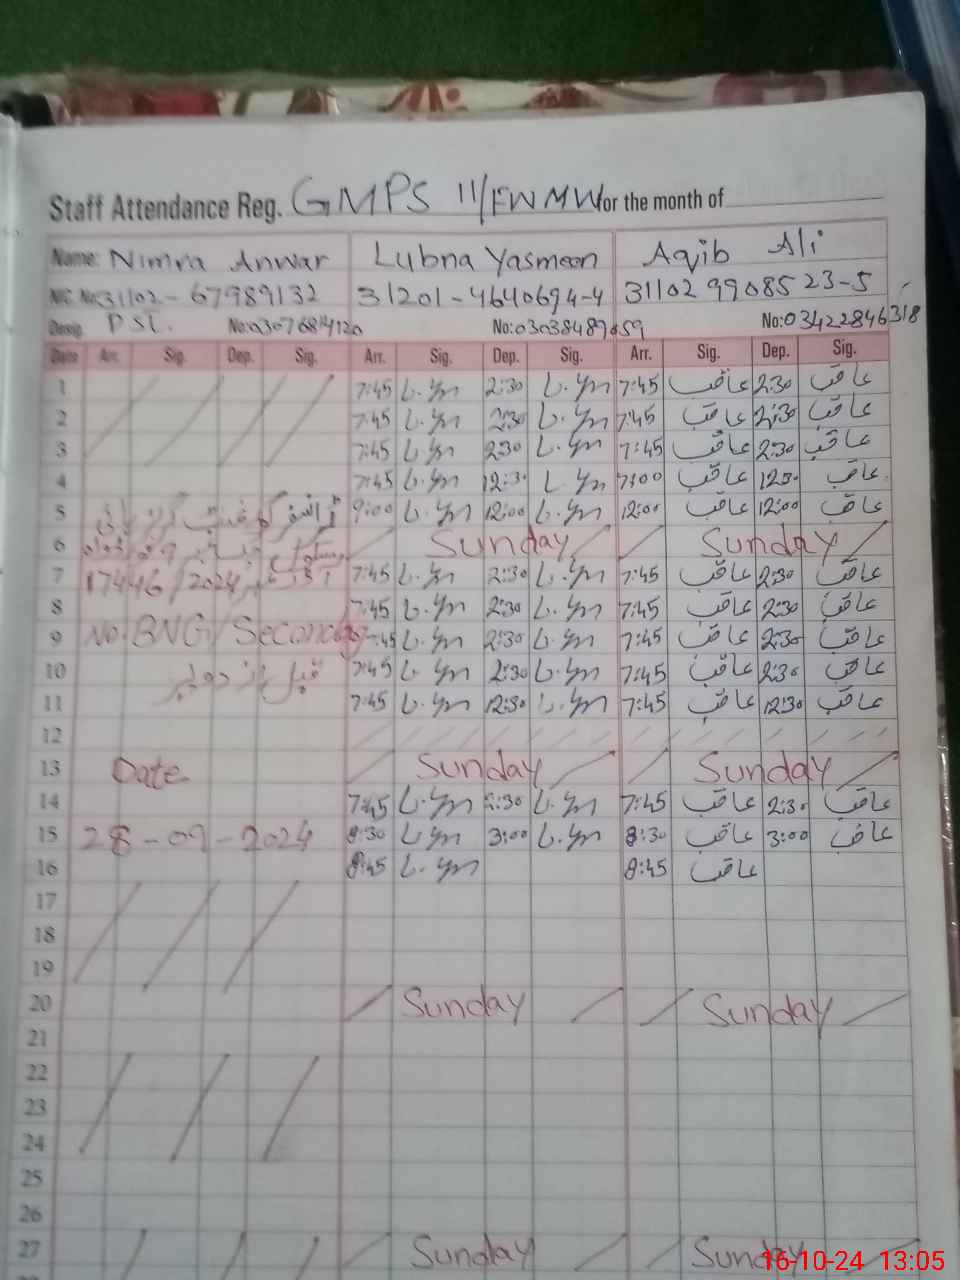 Staff Attendance Reg. GMPS 11/FWMW for the month of
Name: Nimra Anwar Lubna Yasmeen Aqib Ali
NIC No. 31102-67989132 31201-4640694-4 31102 9908523-5
Desig. PST. No:03076814120 No:03038489059 No:03422846318
Date Arr. Sig. Dep. Sig. Arr. Sig. Dep. Sig. Arr. Sig. Dep. Sig.
1 7:45 L.Ym 2:30 L.Ym 7:45 عاقب 2:30 عاقب
2 7:45 L.Ym 2:30 L.Ym 7:45 عاقب 2:30 عاقب
3 7:45 L.Ym 2:30 L.Ym 7:45 عاقب 2:30 عاقب
4 7:45 L.Ym 12:30 L.Ym 7:00 عاقب 1230 عاقب
5 9:00 L.Ym 12:00 L.Ym 12:00 عاقب 12:00 عاقب
6 Sunday Sunday
7 17446/2024 7:45 L.Ym 2:30 L.Ym 7:45 عاقب 2:30 عاقب
8 7:45 L.Ym 2:30 L.Ym 7:45 عاقب 2:30 عاقب
9 No. BNG/Secondary 7:45 L.Ym 2:30 L.Ym 7:45 عاقب 2:30 عاقب
10 7:45 L.Ym 2:30 L.Ym 7:45 عاقب 2:30 عاقب
11 7:45 L.Ym 12:30 L.Ym 7:45 عاقب 12:30 عاقب
12
13 Date Sunday Sunday
14 7:45 L.Ym 2:30 L.Ym 7:45 عاقب 2:30 عاقب
15 28-09-2024 8:30 L.Ym 3:00 L.Ym 8:30 عاقب 3:00 عاقب
16 8:45 L.Ym 8:45 عاقب
17
18
19
20 Sunday Sunday
21
22
23
24
25
26
27 Sunday Sunday
16-10-24 13:05